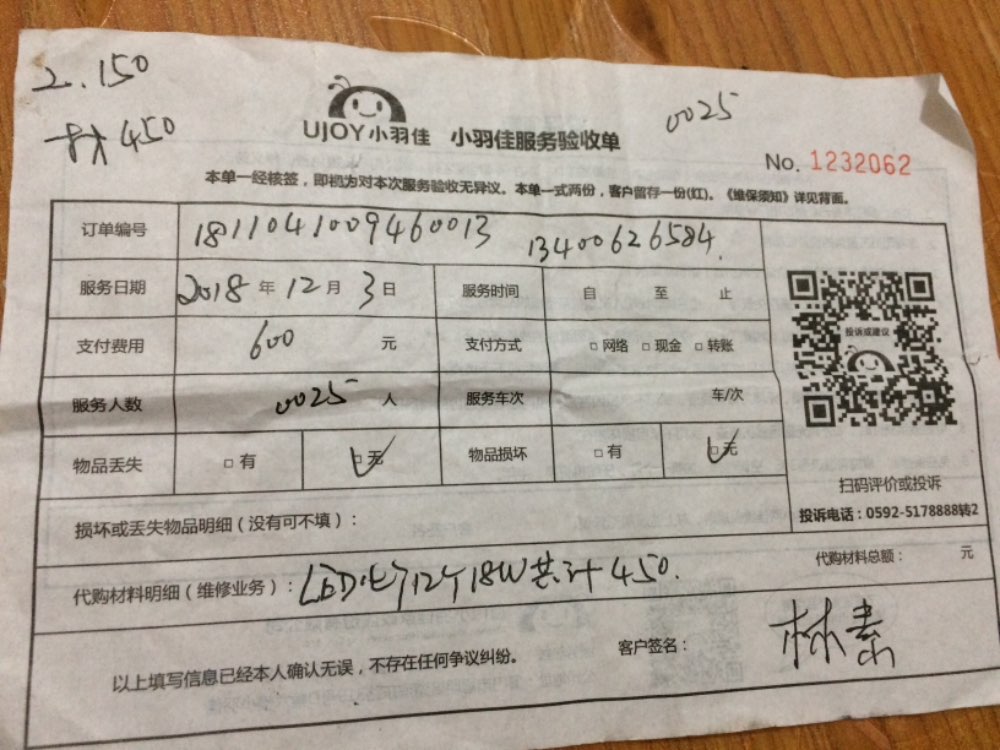 工.150
材 450
0025
UJOY小羽佳 小羽佳服务验收单
No. 1232062
本单一经核签，即视为对本次服务验收无异议。本单一式两份，客户留存一份(红)。《维保须知》详见背面。
订单编号 1811041009460013 13400626584
服务日期 2018 年 12 月 3 日 服务时间 自 至 止
支付费用 600 元 支付方式 □ 网络 □ 现金 □ 转账
投诉或建议
服务人数 0025 人 服务车次 车/次
物品丢失 □ 有 □ 无 物品损坏 □ 有 □ 无
扫码评价或投诉
投诉电话：0592-5178888转2
损坏或丢失物品明细（没有可不填）：
代购材料明细（维修业务）：LED灯12个18W共计450.
代购材料总额： 元
以上填写信息已经本人确认无误，不存在任何争议纠纷。
客户签名： 林素